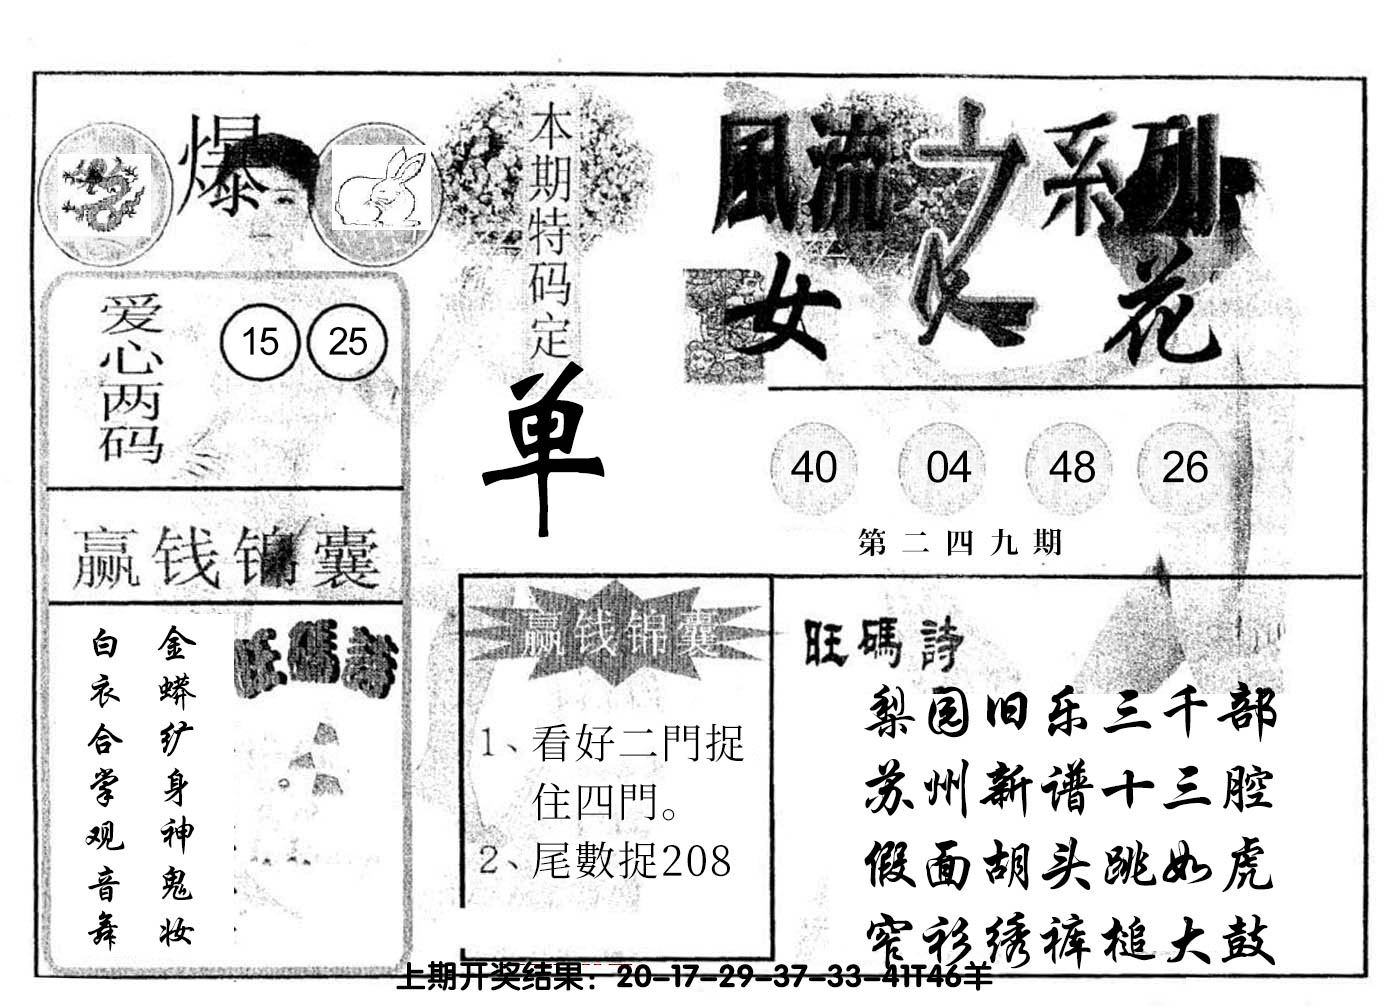 爆
本期特码定
单
風流之系列
女人花
爱心两码
15 25
40 04 48 26
第二四九期
赢钱锦囊
金蟒纩身神鬼妆
白衣合掌观音舞
旺碼詩
赢钱锦囊
1、看好二門捉
住四門。
2、尾數捉208
旺碼詩
梨园旧乐三千部
苏州新谱十三腔
假面胡头跳如虎
窄衫绣裤槌大鼓
上期开奖结果：20-17-29-37-33-41T46羊